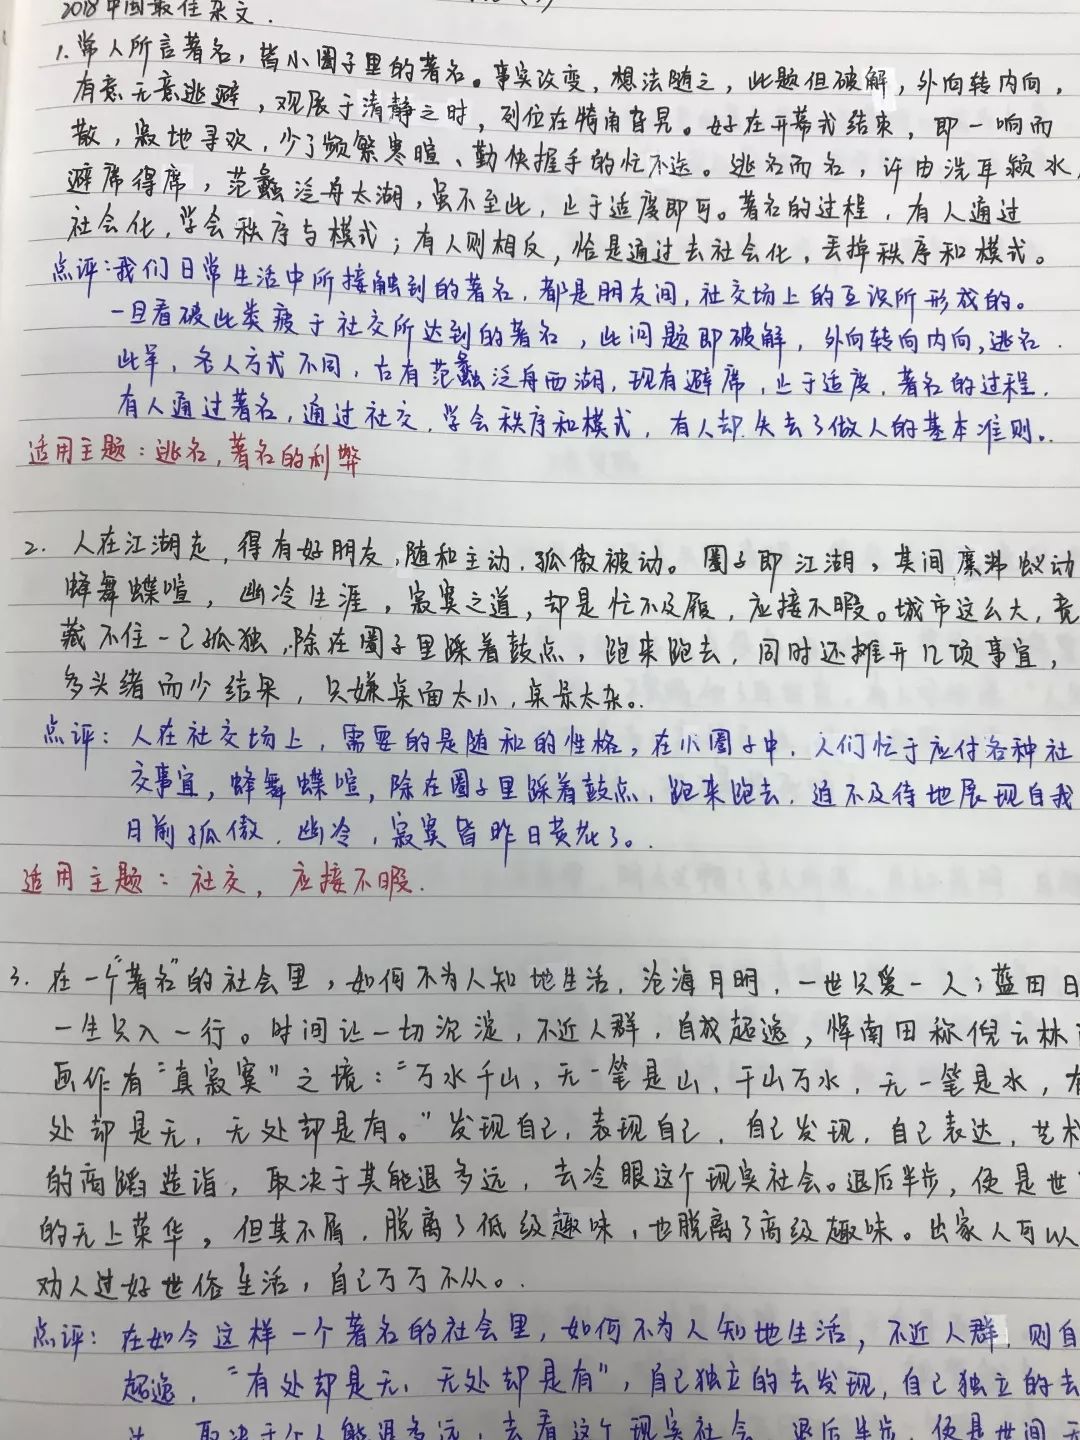 2018中国最佳杂文.
1.常人所言著名，皆小圈子里的著名。事实改变，想法随之，此题但破解，外向转内向，
有意无意逃避，观展于清静之时，列位在犄角旮旯。好在开幕式结束，即一响而
散，寂地寻欢，少了频繁寒暄、勤快握手的忙不迭。逃名而名，许由洗耳颍水，
避席得席，范蠡泛舟太湖，虽不至此，止于适度即可。著名的过程，有人通过
社会化，学会秩序与模式；有人则相反，恰是通过去社会化，丢掉秩序和模式。
点评：我们日常生活中所接触到的著名，都是朋友间，社交场上的互识所形成的。
一旦看破此类疲于社交所达到的著名，此问题即破解，外向转向内向，逃名.
此举，各人方式不同，古有范蠡泛舟西湖，现有避席，止于适度，著名的过程，
有人通过著名，通过社交，学会秩序和模式，有人却失去了做人的基本准则。
适用主题：逃名，著名的利弊
2. 人在江湖走，得有好朋友，随和主动，孤傲被动。圈子即江湖，其间糜沸蚁动
蜂舞蝶喧，幽冷生涯，寂寞之道，却是忙不及履，应接不暇。城市这么大，竟
藏不住一己孤独，除在圈子里踩着鼓点，跑来跑去，同时还摊开几项事宜，
多头绪而少结果，只嫌桌面太小，桌景太杂。
点评：人在社交场上，需要的是随和的性格，在小圈子中，人们忙于应付各种社
交事宜，蜂舞蝶喧，除在圈子里踩着鼓点，跑来跑去，迫不及待地展现自我
日前孤傲，幽冷，寂寞皆昨日黄花了。
适用主题：社交，应接不暇.
3. 在一个“著名”的社会里，如何不为人知地生活，沧海月明，一世只爱一人；蓝田日
一生只入一行。时间让一切沉淀，不近人群，自放超逸，恽南田称倪云林
画作有“真寂寞”之境：“万水千山，无一笔是山，千山万水，无一笔是水，有
处却是无，无处却是有。”发现自己，表现自己，自己发现，自己表达，艺术
的高蹈造诣，取决于其能退多远，去冷眼这个现实社会。退后半步，便是世
的无上荣华，但其不屑，脱离了低级趣味，也脱离了高级趣味。出家人可以
劝人过好世俗生活，自己万万不从。
点评：在如今这样一个著名的社会里，如何不为人知地生活，不近人群，则自
超逸，“有处却是无，无处却是有”，自己独立的去发现，自己独立的去
达，取决于个人能退多远，去看这个现实社会，退后半步，便是世间无